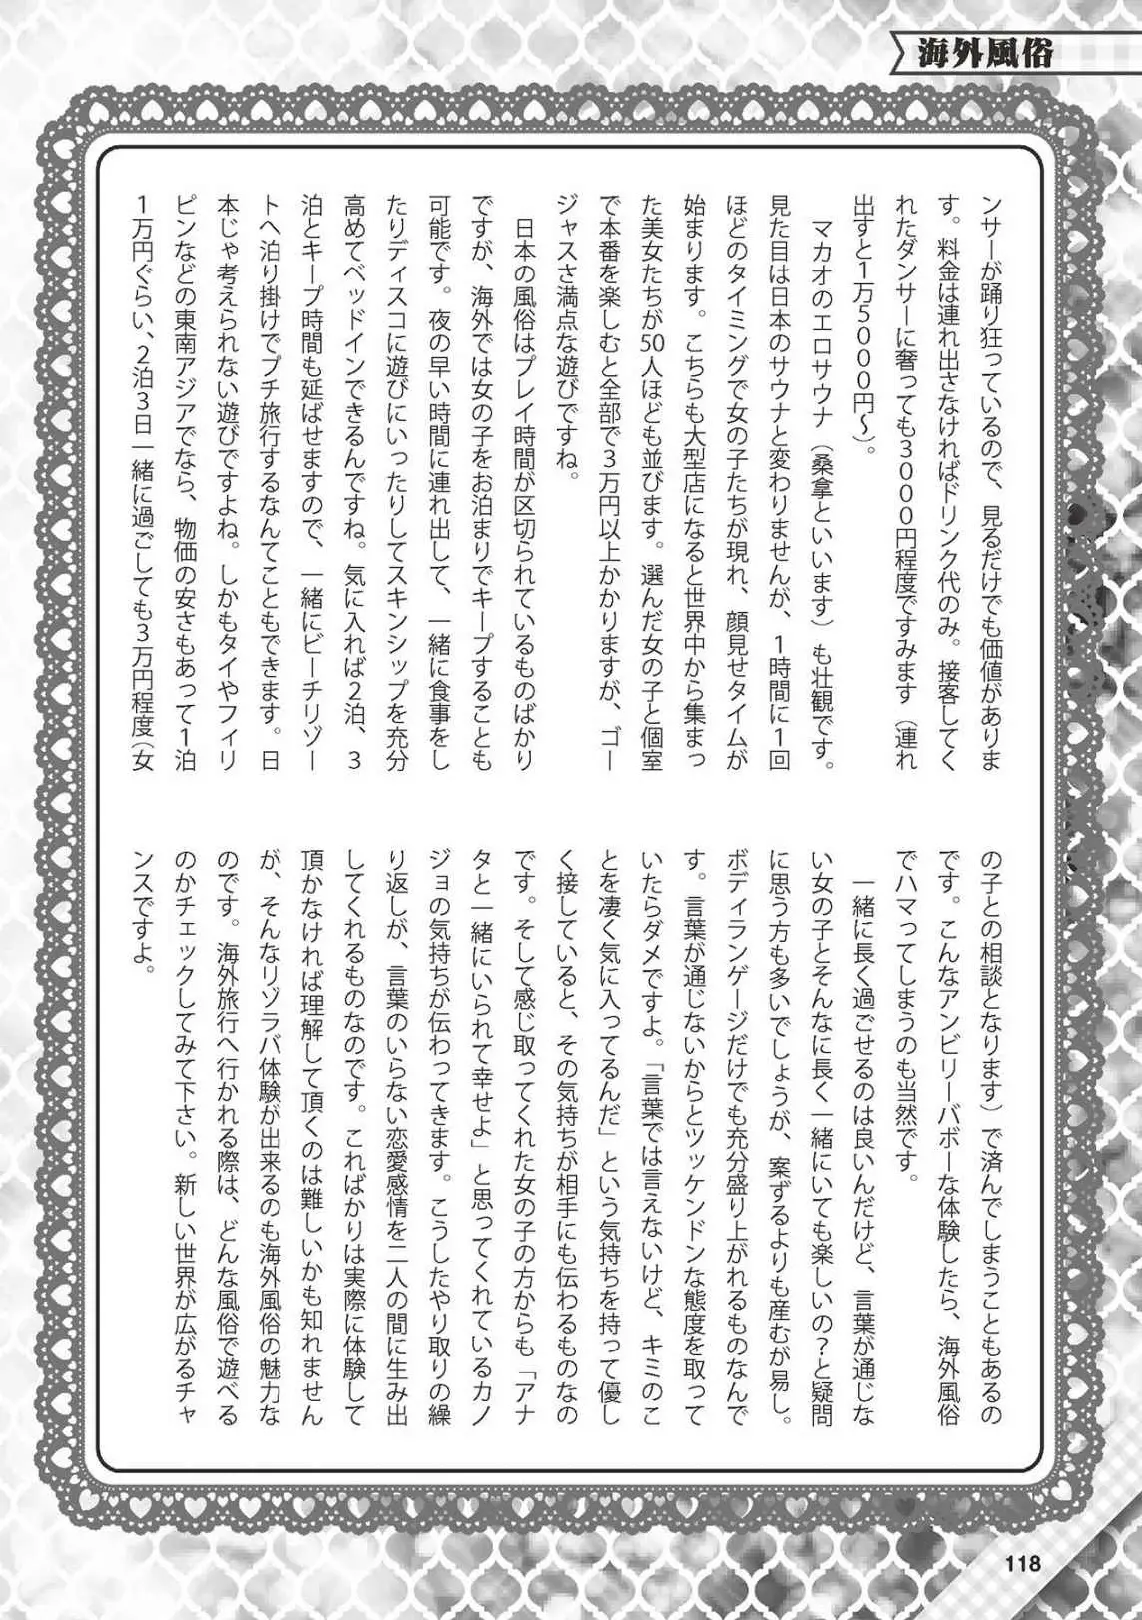 海外風俗
ンサーが踊り狂っているので、見るだけでも価値がありま
す。料金は連れ出さなければドリンク代のみ。接客してく
れたダンサーに奢っても３０００円程度ですみます（連れ
出すと１万５０００円〜）。
マカオのエロサウナ（桑拿といいます）も壮観です。
見た目は日本のサウナと変わりませんが、１時間に１回
ほどのタイミングで女の子たちが現れ、顔見せタイムが
始まります。こちらも大型店になると世界中から集まっ
た美女たちが50人ほども並びます。選んだ女の子と個室
で本番を楽しむと全部で３万円以上かかりますが、ゴー
ジャスさ満点な遊びですね。
日本の風俗はプレイ時間が区切られているものばかり
ですが、海外では女の子をお泊まりでキープすることも
可能です。夜の早い時間に連れ出して、一緒に食事をし
たりディスコに遊びにいったりしてスキンシップを充分
高めてベッドインできるんですね。気に入れば２泊、３
泊とキープ時間も延ばせますので、一緒にビーチリゾー
トへ泊り掛けでプチ旅行するなんてこともできます。日
本じゃ考えられない遊びですよね。しかもタイやフィリ
ピンなどの東南アジアでなら、物価の安さもあって１泊
１万円ぐらい、２泊３日一緒に過ごしても３万円程度（女
の子との相談となります）で済んでしまうこともあるの
です。こんなアンビリーバボーな体験したら、海外風俗
でハマってしまうのも当然です。
一緒に長く過ごせるのは良いんだけど、言葉が通じな
い女の子とそんなに長く一緒にいても楽しいの？と疑問
に思う方も多いでしょうが、案ずるよりも産むが易し。
ボディランゲージだけでも充分盛り上がれるものなんで
す。言葉が通じないからとツッケンドンな態度を取って
いたらダメですよ。「言葉では言えないけど、キミのこ
とを凄く気に入ってるんだ」という気持ちを持って優し
く接していると、その気持ちが相手にも伝わるものなの
です。そして感じ取ってくれた女の子の方からも「アナ
タと一緒にいられて幸せよ」と思ってくれているカノ
ジョの気持ちが伝わってきます。こうしたやり取りの繰
り返しが、言葉のいらない恋愛感情を二人の間に生み出
してくれるものなのです。こればかりは実際に体験して
頂かなければ理解して頂くのは難しいかも知れません
が、そんなリゾラバ体験が出来るのも海外風俗の魅力な
のです。海外旅行へ行かれる際は、どんな風俗で遊べる
のかチェックしてみて下さい。新しい世界が広がるチャ
ンスですよ。
118